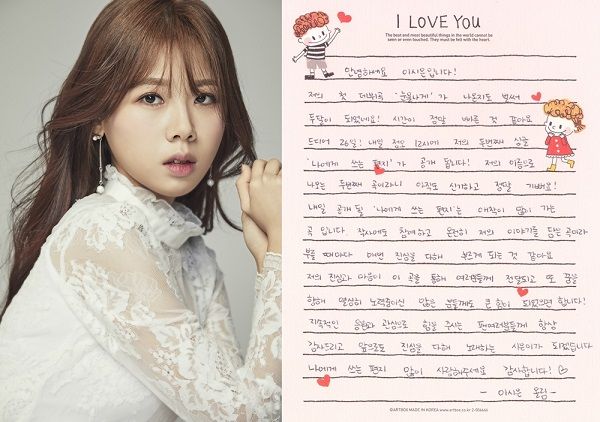 I LOVE YOU
The best and most beautiful things in the world cannot be
seen or even touched. They must be felt with the heart.
안녕하세요 이시은입니다!
저의 첫 데뷔곡 '눈부시게'가 나온지도 벌써
두달이 되었네요! 시간이 정말 빠른 것 같아요
드디어 26일! 내일 정오 12시에 저의 두번째 싱글
'나에게 쓰는 편지'가 공개 됩니다! 저의 이름으로
나오는 두번째 곡이라니 아직도 신기하고 정말 기뻐요!
내일 공개 될 '나에게 쓰는 편지'는 애착이 많이 가는
곡 입니다 작사에도 참여하고 온전히 저의 이야기를 담은 곡이라
부를 때마다 매번 진심을 다해 부르게 되는 것 같아요
저의 진심과 마음이 이 곡을 통해 여러분들께 전달되고 또 꿈을
향해 열심히 노력중이신 많은 분들께도 큰 힘이 되었으면 합니다!
지속적인 응원과 관심으로 힘을 주시는 팬여러분들께 항상
감사드리고 앞으로도 진심을 다해 노래하는 시은이가 되겠습니다
나에게 쓰는 편지 많이 사랑해주세요 감사합니다! ♡
- 이시은 올림 -
©ARTBOX MADE IN KOREA www.artbox.co.kr